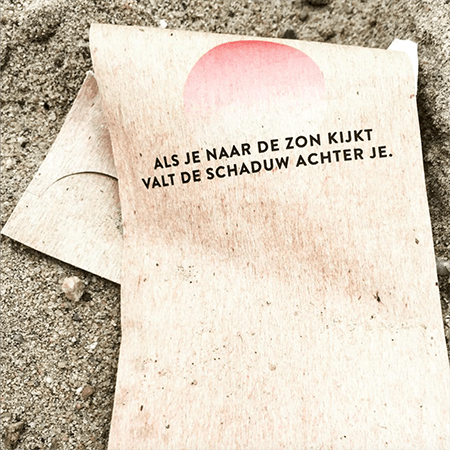 ALS JE NAAR DE ZON KIJKT
VALT DE SCHADUW ACHTER JE.